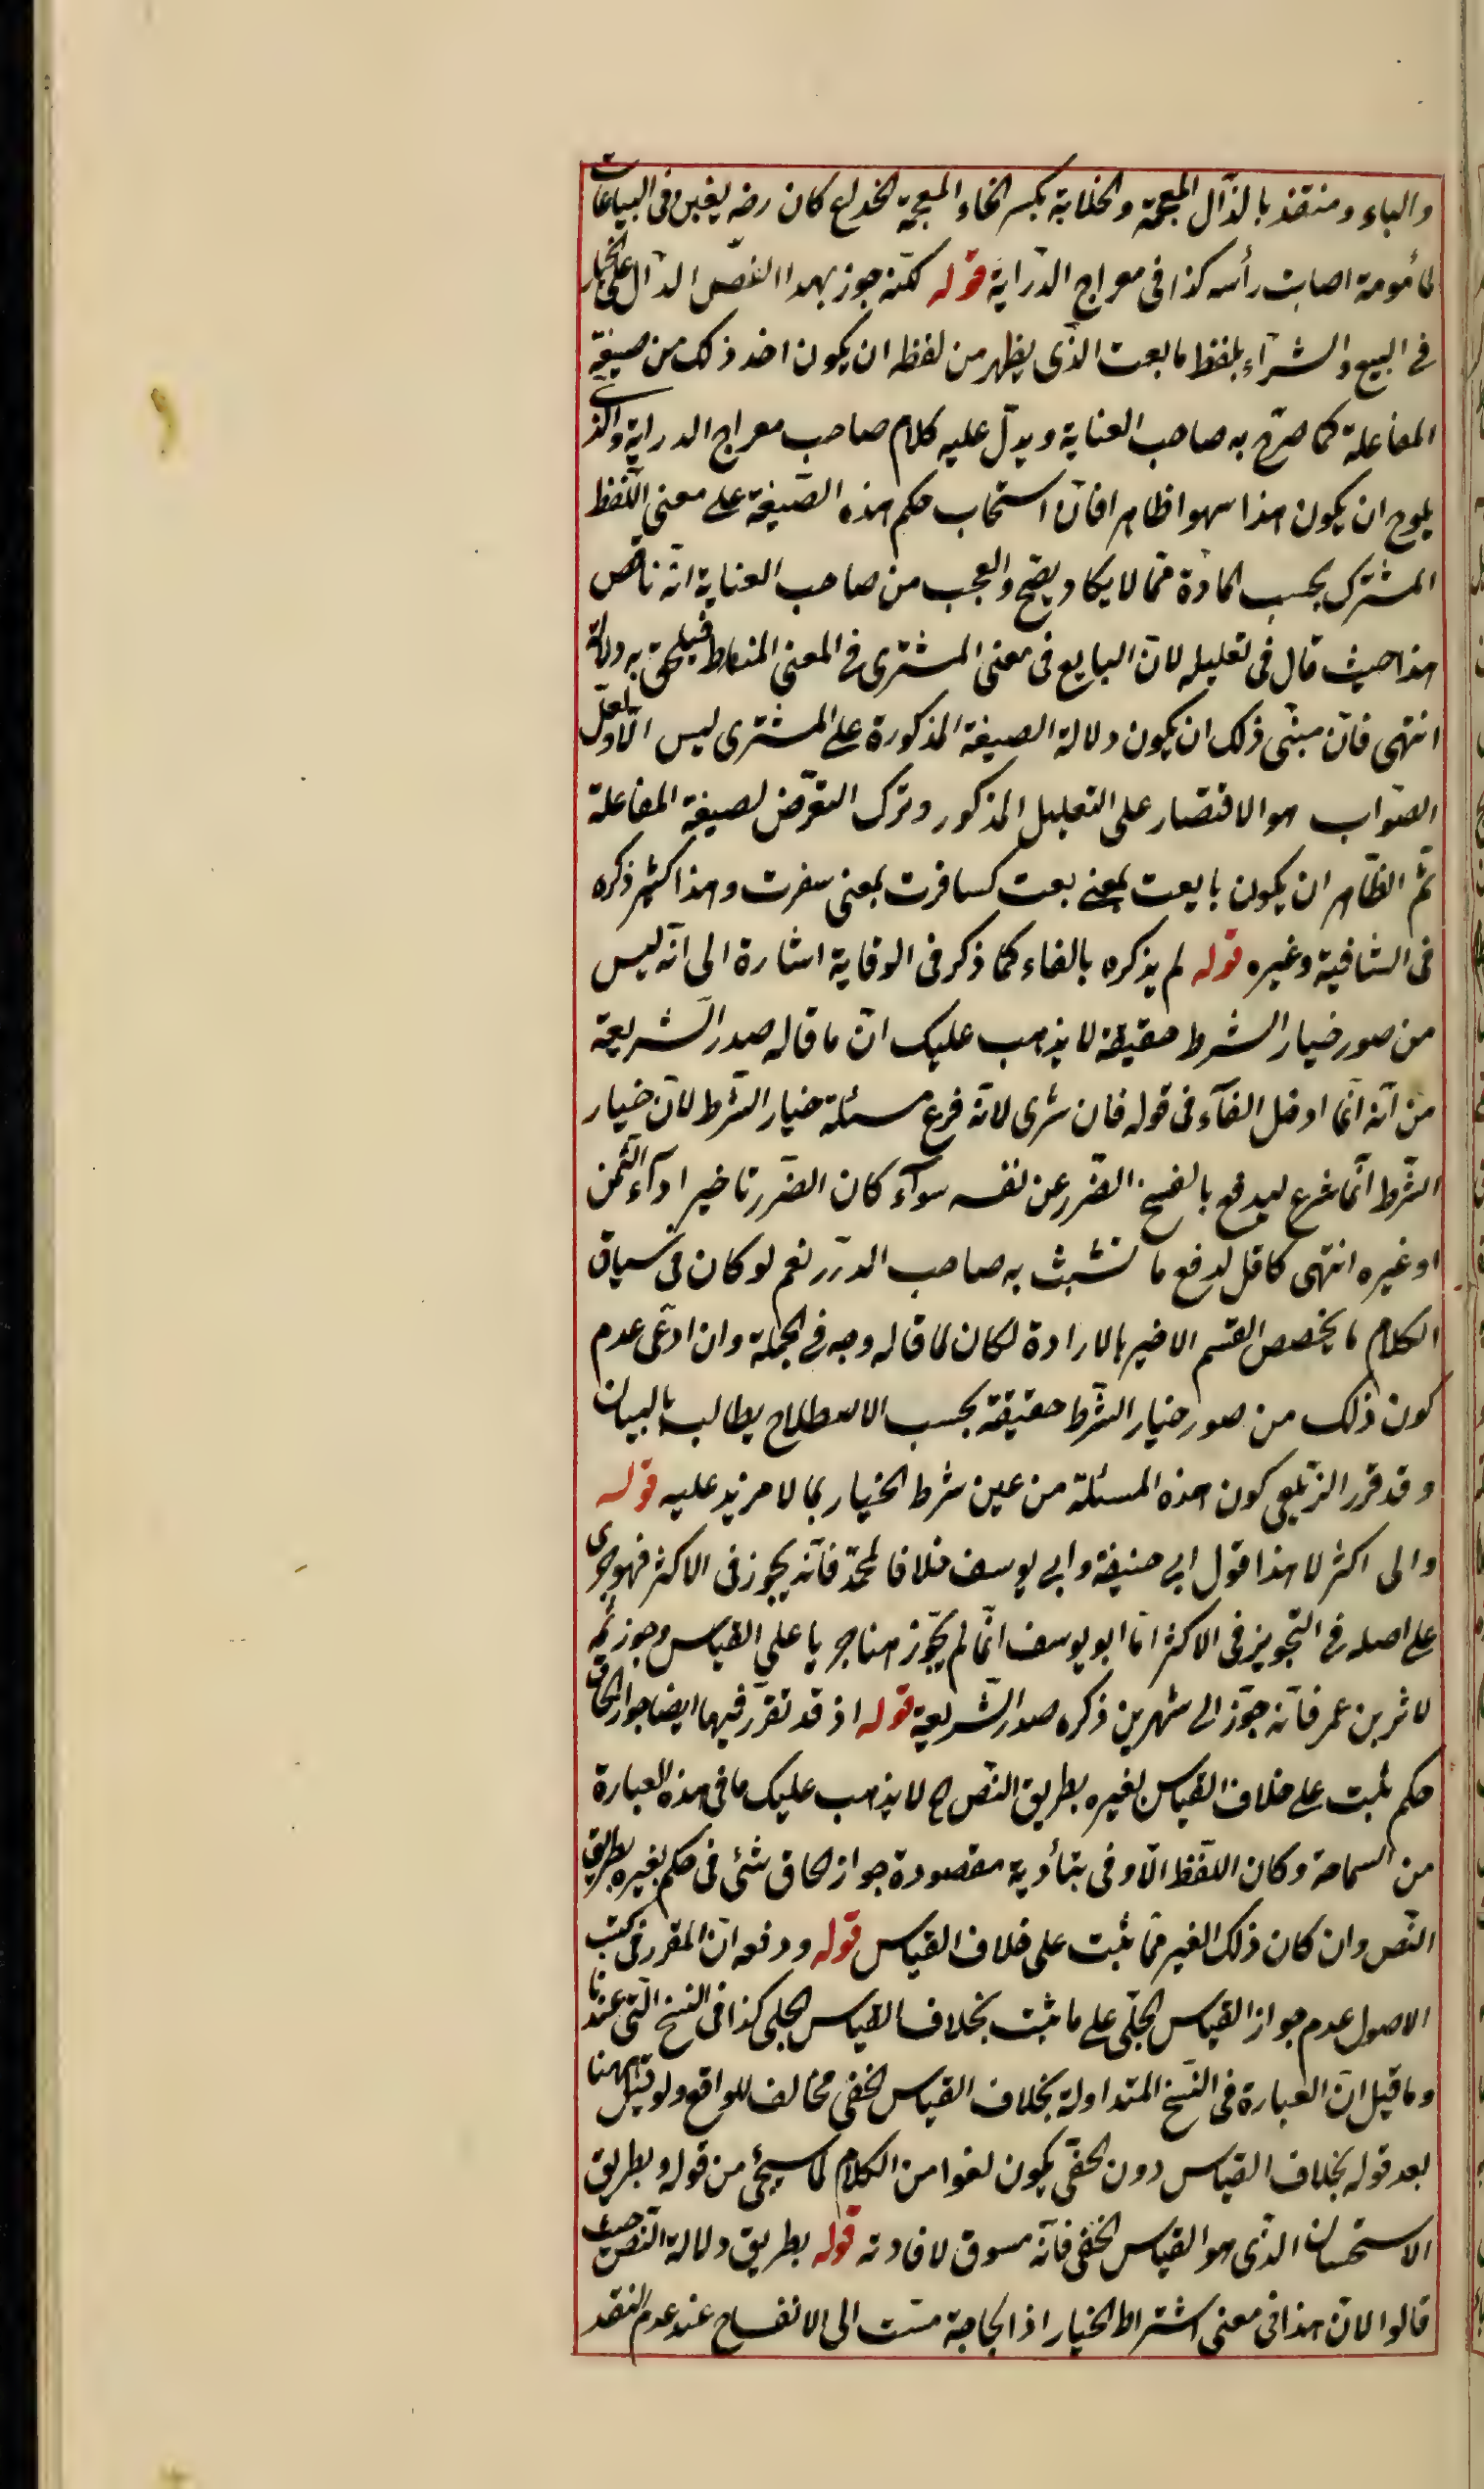 والباء ومنقذ بالذّال المعجمة والخلابة بكسر الخاء المعجمة الخداع كان رضه يغبن فى البياعات
لمأمومة اصابت رأسه كذا فى معراج الدّراية قوله لكنّه جوز بهذا النصّ الدّال على الخيار
فى البيع والشّراء بلفظ بايعت الذّى يظهر من لفظه ان يكون اخذ ذلك من صيغة
المفاعلة كما صرّح به صاحب العناية ويدلّ عليه كلام صاحب معراج الدراية والّذى
يلوح ان يكون هذا سهوا ظاهرا فانّ استحاب حكم هذه الصّيغة على معنى اللّفظ
المشترك بحسب المادّة ممّا لا يكاد يصّح والعجب من صاحب العناية انّه ناقض
هذا حيث قال فى تعليله لانّ البايع فى معنى المشترى فى المعنى المناط فيلحق به دلالة
انتهى فانّ مبنّى ذلك ان يكون دلالة الصيغة المذكورة على المشترى ليس الّا ولعلّ
الصّواب هو الاقتصار على التعليل المذكور وترك التعرّض لصيغة المفاعلة
ثمّ الظّاهر ان يكون بايعت بمعنى بعت كسافرت بمعنى سفرت وهذا كثير ذكره
فى الشافية وغيره قوله لم يذكره بالفاء كما ذكر فى الوقاية اشارة الى انّه ليس
من صور خيار الشرط حقيقة لا يذهب عليك انّ ما قاله صدر الشّريعة
من انّه انّما ادخل الفآء فى قوله فان شرى لانّه فرع مسئلة خيار الشّرط لانّ خيار
الشّرط انّما شرع ليدفع بالفسخ الضّرر عن نفسه سوآء كان الضّرر تاخير ادآء الثّمن
او غيره انتهى كافل لدفع ما تشبث به صاحب الدّرر نعم لو كان فى سياق
الكلام ما يخصص القسم الاخير بالارادة لكان لما قاله وجه فى الجملة وان ادّعى عدم
كون ذلك من صور خيار الشّرط حقيقة بحسب الاصطلاح يطالب بالبيان
وقد قرر الزّيلعى كون هذه المسئلة من عين شرط الخيار بما لا مزيد عليه قوله
والى اكثر لا هذا قول ابى حنيفة وابى يوسف خلافا لمحمّد فانّه يجوز فى الاكثر فهو جرى
على اصله فى التّجويز فى الاكثر امّا ابو يوسف انّما لم يجوّز هنا جريا على القياس وجوز ثمّه
لاثر بن عمر فانّه جوّز الى شهرين ذكره صدر الشّريعة قوله اذ قد تقرّر فيها ايضا جواز الحاق
حكم ثبت على خلاف القياس لغيره بطريق النّص ح لا يذهب عليك ما فى هذه العبارة
من السماحة وكان اللّفظ الّاوفى بتأدية مقصوده جواز الحاق شئ فى حكم لغيره بطريق
النّص وان كان ذلك الغير ممّا ثبت على خلاف القياس قوله ودفعه انّ المقرر فى كتب
الاصول عدم جواز القياس الجلّى على ما ثبت بخلاف القياس الجلى كذا فى النسخ الّتى عندنا
وما قيل انّ العبارة فى النّسخ المتداولة بخلاف القياس الخفى مخالف للواقع ولو قيل ههنا
بعد قوله بخلاف القياس دون الخفّى يكون لغوا من الكلام لما سيجئ من قوله وبطريق
الاستحسان الذّى هو القياس الخفى فانّه مسوق لافادته قوله بطريق دلالة النّص حيث
قالوا لانّ هذا فى معنى اشتراط الخيار اذ الحاجة مسّت الى الانفساخ عند عدم النقد